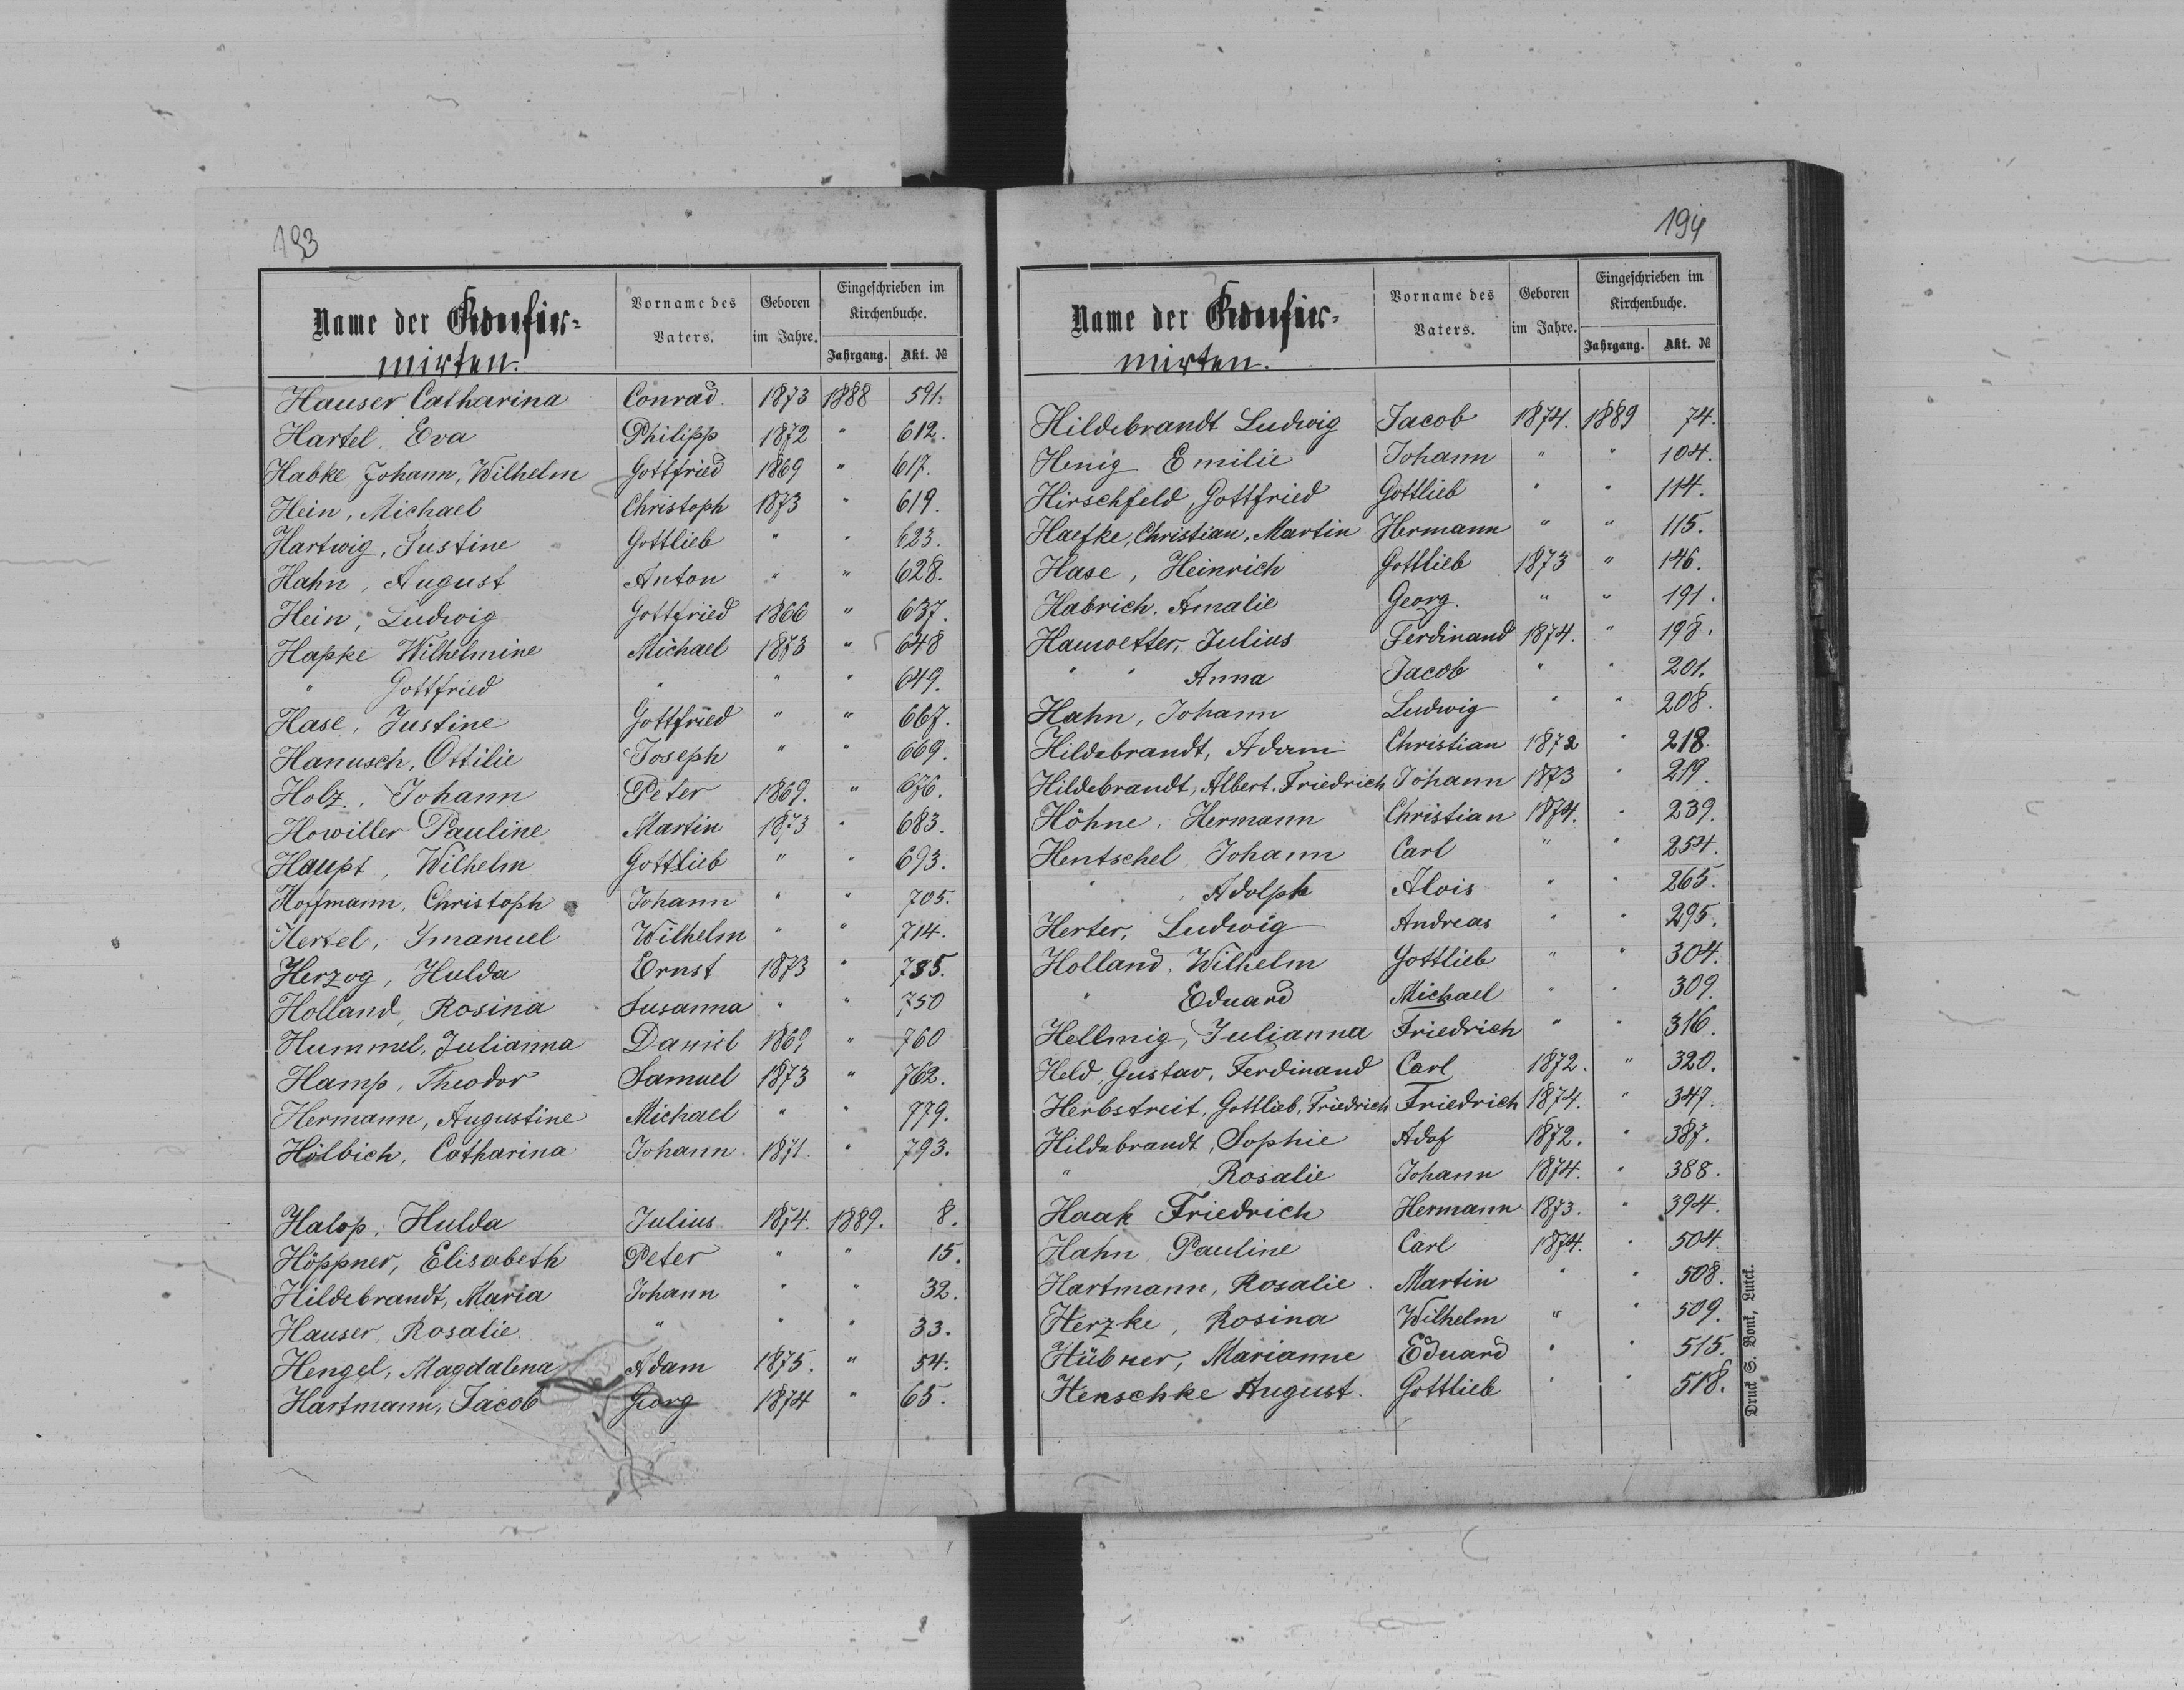 193
Name der Konfir-
mirten.
Vorname des
Vaters.
Geboren
im Jahre.
Eingeschrieben im
Kirchenbuche.
Jahrgang. Akt. №
Hauser Catharina Conrad. 1873 1888 591.
Hartel, Eva Philipp 1872 " 612.
Habke Johann, Wilhelm Gottfried 1869 " 617.
Hein, Michael Christoph 1873 " 619.
Hartwig, Justine Gottlieb " " 623.
Hahn, August Anton " " 628.
Hein, Ludwig Gottfried 1866 " 637.
Hapke Wilhelmine Michael 1873 " 648
" Gottfried " " " 649.
Hase, Justine Gottfried " " 667.
Hanusch, Ottilie Joseph " " 669.
Holz, Johann Peter 1869. " 676.
Howiller Pauline Martin 1873 " 683.
Haupt, Wilhelm Gottlieb " " 693.
Hoffmann, Christoph Johann " " 705.
Hertel, Imanuel Wilhelm " " 714.
Herzog, Hulda Ernst 1873 " 735.
Holland, Rosina Susanna " " 750
Hummel, Julianna Daniel 1869 " 760
Hamp, Theodor Samuel 1873 " 762.
Hermann, Augustine Michael " " 779.
Hölbich, Catharina Johann 1871. " 793.
Halop, Hulda Julius 1874. 1889. 8.
Höppner, Elisabeth Peter " " 15.
Hildebrandt, Maria Johann " " 32.
Hauser Rosalie " " " 33.
Hengel, Magdalena Adam 1875. " 54.
Hartmann, Jacob Georg 1874 " 65.
194
Name der Konfir-
mirten.
Vorname des
Vaters.
Geboren
im Jahre.
Eingeschrieben im
Kirchenbuche.
Jahrgang. Akt. №
Hildebrandt Ludwig Jacob 1874. 1889 74.
Henig Emilie Johann " " 104.
Hirschfeld, Gottfried Gottlieb " " 114.
Haefke, Christian, Martin Hermann " " 115.
Hase, Heinrich Gottlieb 1873 " 146.
Habrich, Amalie Georg. " " 191.
Hauwetter, Julius Ferdinand 1874. " 198.
" " Anna Jacob " " 201.
Hahn, Johann Ludwig " " 208.
Hildebrandt, Adam Christian 1872 " 218.
Hildebrandt, Albert, Friedrich Johann 1873 " 219.
Höhne, Hermann Christian 1874. " 239.
Hentschel, Johann Carl " " 254.
" , Adolph Alois " " 265.
Herter, Ludwig Andreas " " 295.
Holland, Wilhelm Gottlieb " " 304.
" Eduard Michael " " 309.
Hellmig, Julianna Friedrich " " 316.
Held, Gustav, Ferdinand Carl 1872. " 320.
Herbstreit, Gottlieb, Friedrich Friedrich 1874. " 347.
Hildebrandt, Sophie Adof 1872. " 387.
" Rosalie Johann 1874. " 388.
Haak Friedrich Hermann 1873. " 394.
Hahn Pauline Carl 1874. " 504.
Hartmann, Rosalie. Martin " " 508.
Herzke, Rosina Wilhelm " " 509.
Hübner, Marianne Eduard " " 515.
Henschke August. Gottlieb " " 518.
Druck S. Bonk, Lutck.